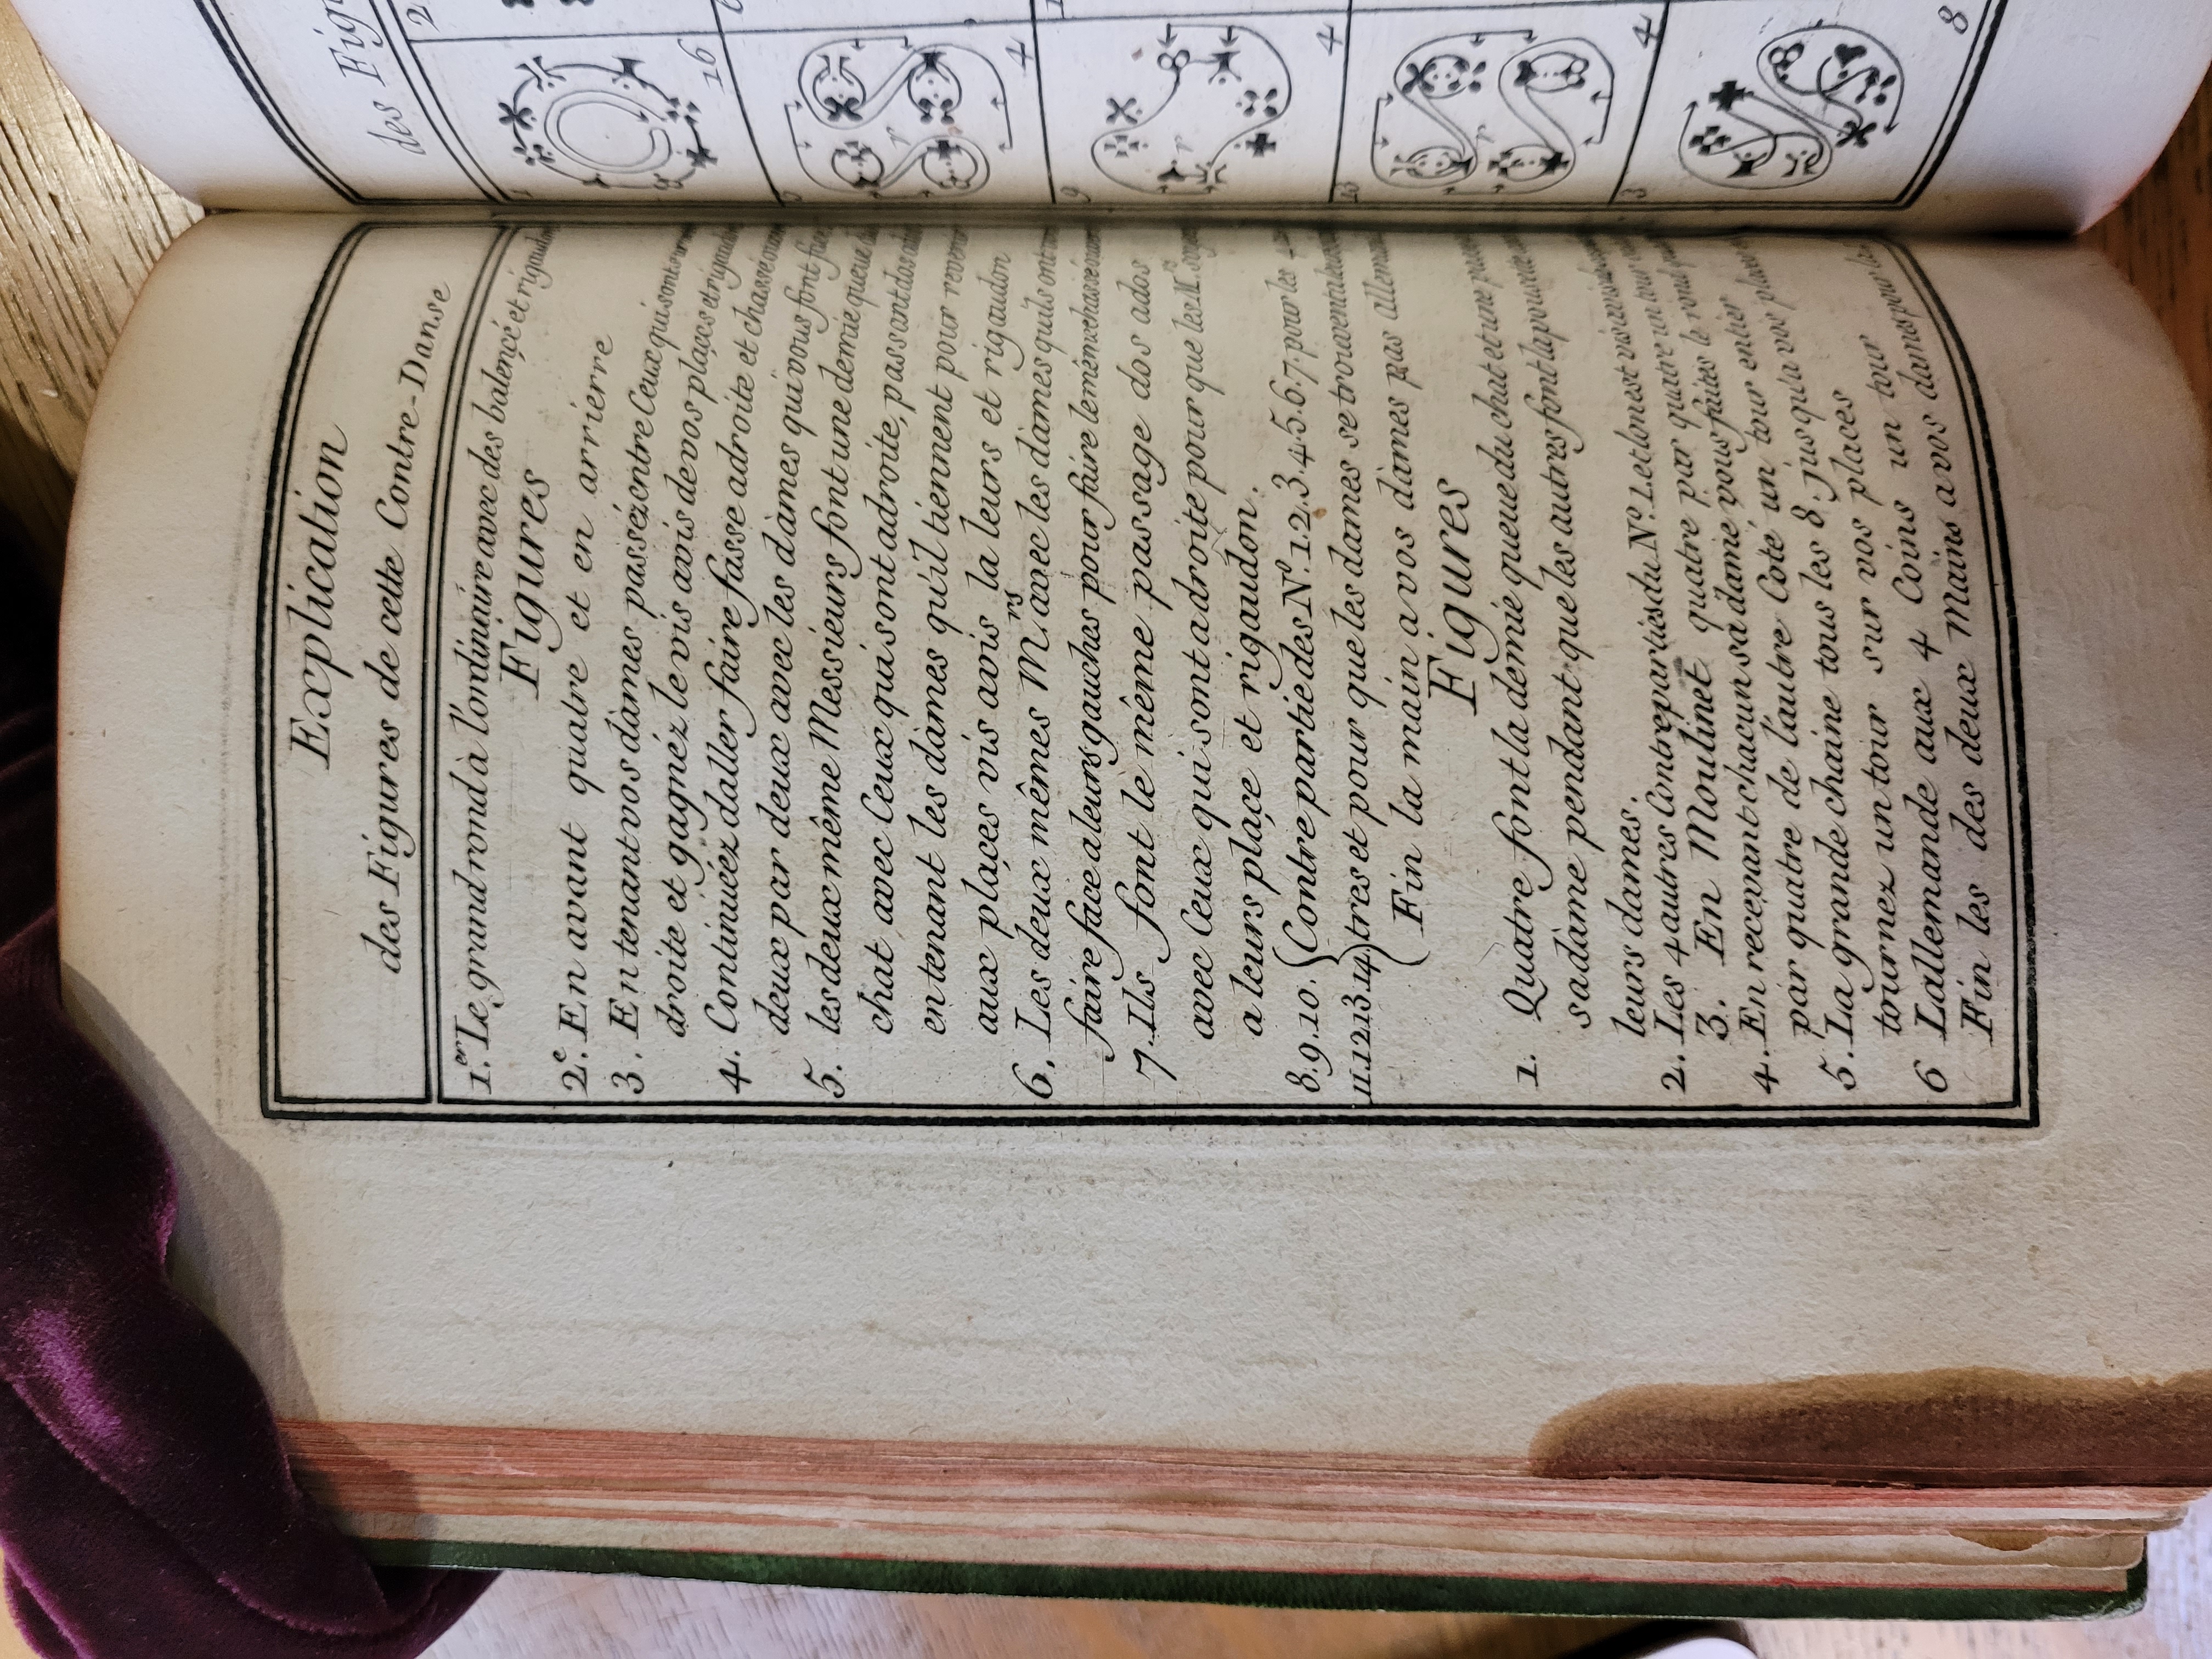 Explication
des Figures de cette Contre-Danse
1.er Le grand rond à l'ordinaire avec des balencé et rigaudon
Figures
2.e En avant quatre et en arrierre
3. En tenant vos dàmes passéz entre Ceux qui sont a votre
droite et gagnéz le vis avis de vos plaçes et rigaudon
4. Continuéez daller faire fasse adroite et chassé ouvert
deux par deux avec les dàmes qui vous font face
5. les deux même Messieurs font une demie queue du
chat avec Ceux qui sont adroite, passant dos ados
en tenant les dàmes qu'il tiennent pour revenir
aux plaçes vis avis la leurs et rigaudon
6. Les deux mêmes M.rs avec les dàmes quils ont
faire face a leurs gauches pour faire le même chassé ouvert
7. Ils font le même passage dos ados
avec Ceux qui sont adroite pour que les M.rs soyent
a leurs plaçe et rigaudon.
8.9.10. Contre partie des N.º 1.2.3.4.5.6.7. pour les
11.12.13.14 tres et pour que les dames se trouvent
Fin la main a vos dàmes pas allemande
Figures
1. Quatre font la demie queue du chat et une
sa dàme pendant que les autres font la
leurs dames.
2. Les 4 autres Contreparties du N.º 1. et lon est vis avis
3. En Moulinet quatre par quatre un tour
4. En recevant chacun sa dame vous faites le rond
par quatre de l'autre Coté un tour entier
5. La grande chaine tous les 8. jusqu'a vos plaçes
tournez un tour sur vos places
6 Lallemande aux 4 Coins un tour
Fin les des deux Mains a vos dames pour
des Fig
2
1
16
4
9
4
13
4
3
8